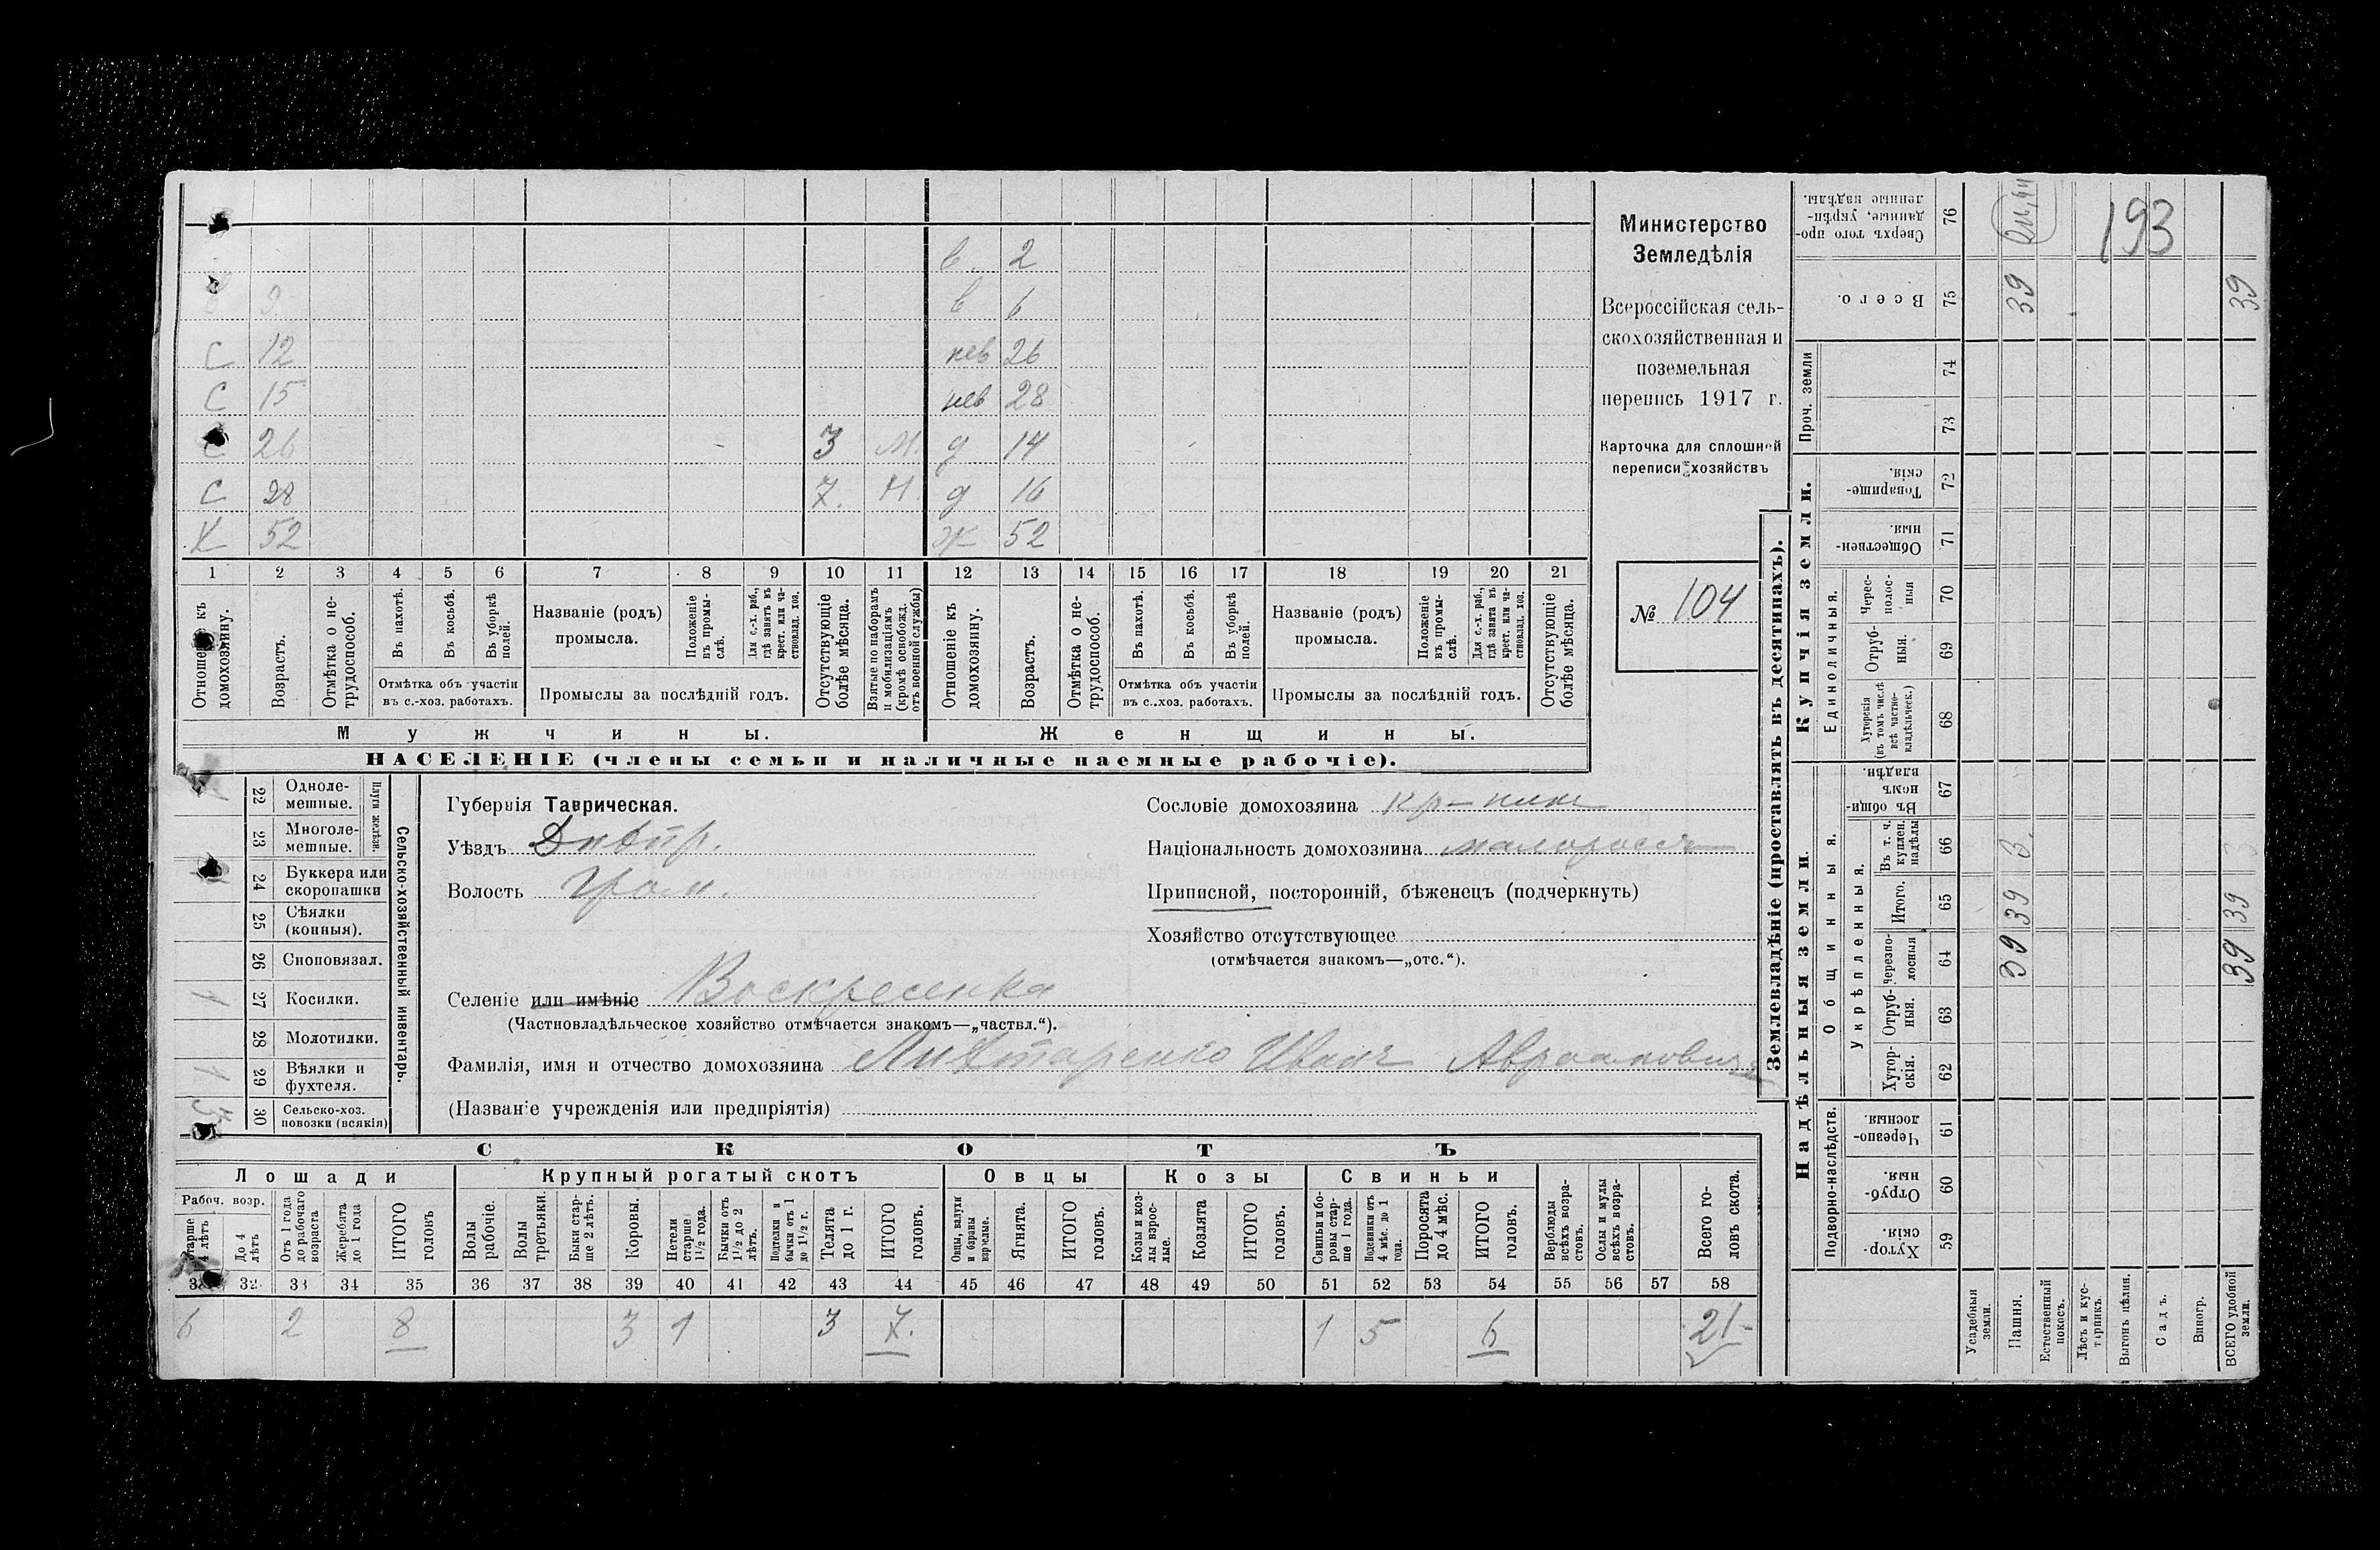 в. 2
9. в 6
С 12 нев 26
С 15 нев 28
С 26 3 М. д 14
С 28 7. М. д 16
Х 52 ж 52
1 2 3 4 5 6 7 8 9 10 11 12 13 14 15 16 17 18 19 20 21
Отношеніе къ домохозяину.
Возрастъ.
Отмѣтка о не-трудоспособ.
Въ пахотѣ.
Въ косьбѣ.
Въ уборкѣ полей.
Отмѣтка объ участіи
въ с.-хоз. работахъ.
Названіе (родъ)
промысла.
Положеніе въ промы-слѣ.
Для с.-х. раб., гдѣ занятъ въ крест. или ча-стновлад. хоз.
Промыслы за послѣдній годъ.
Отсутствующіе болѣе мѣсяца.
Взятые по наборамъ и мобилизаціямъ (кромѣ освобожд. отъ военной службы)
Отношеніе къ домохозяину.
Возрастъ.
Отмѣтка о не-трудоспособ.
Въ пахотѣ.
Въ косьбѣ.
Въ уборкѣ полей.
Отмѣтка объ участіи
въ с.-хоз. работахъ.
Названіе (родъ)
промысла.
Положеніе въ промы-слѣ.
Для с.-х. раб., гдѣ занята въ крест. или ча-стновлад. хоз.
Промыслы за послѣдній годъ.
Отсутствующіе болѣе мѣсяца.
Мужчины. Женщины.
НАСЕЛЕНІЕ (члены семьи и наличные наемные рабочіе).
Министерство
Земледѣлія
Всероссійская сель-
скохозяйственная и
поземельная
перепись 1917 г.
Карточка для сплошной
переписи хозяйствъ
№ 104
22 Одноле-мешные.
23 Многоле-мешные.
Плуги желѣзн.
24 Буккера или скоропашки
25 Сѣялки (конныя).
26 Сноповязал.
27 Косилки. 1
28 Молотилки.
29 Вѣялки и фухтеля. 1
30 Сельско-хоз. повозки (всякія) 3
Сельско-хозяйственный инвентарь.
Губернія Таврическая.
Уѣздъ Днѣпр.
Волость Гром.
Селеніе или имѣніе Воскресенка
(Частновладѣльческое хозяйство отмѣчается знакомъ—„частвл.“).
Фамилія, имя и отчество домохозяина Лихтаренко Иванъ Авраамовичъ
(Названіе учрежденія или предпріятія)
Сословіе домохозяина кр-нинъ
Національность домохозяина малороссъ
Приписной, посторонній, бѣженецъ (подчеркнуть)
Хозяйство отсутствующее
(отмѣчается знакомъ—„отс.“).
СКОТЪ
Лошади Крупный рогатый скотъ Овцы Козы Свиньи
Рабоч. возр.
Старше 4 лѣтъ
До 4 лѣтъ
Отъ 1 года до рабочаго возраста
Жеребята до 1 года
ИТОГО головъ
Волы рабочіе.
Волы третьяки.
Быки стар-ше 2 лѣтъ.
Коровы.
Нетели старше 1½ года.
Бычки отъ 1½ до 2 лѣтъ.
Подтелки и бычки отъ 1 до 1½ г.
Телята до 1 г.
ИТОГО головъ.
Овцы, валухи и бараны взрослые.
Ягнята.
ИТОГО головъ.
Козы и коз-лы взрос-лые.
Козлята
ИТОГО головъ.
Свиньи и бо-ровы стар-ше 1 года.
Подсвинки отъ 4 мѣс. до 1 года.
Поросята до 4 мѣс.
ИТОГО головъ.
Верблюды всѣхъ возра-стовъ.
Ослы и мулы всѣхъ возра-стовъ.
Всего го-ловъ скота.
32 33 34 35 36 37 38 39 40 41 42 43 44 45 46 47 48 49 50 51 52 53 54 55 56 57 58
6 2 8 3 1 3 7. 1 5 6 21
Землевладѣніе (проставлять въ десятинахъ).
Надѣльныя земли. Купчія земли. Проч. земли
Подворно-наслѣдств. Общинныя. Единоличныя.
Укрѣпленныя.
59 Хутор-скія.
60 Отруб-ныя.
61 Черезпо-лосныя.
62 Хутор-скія.
63 Отруб-ныя.
64 Черезпо-лосныя
65 Итого.
66 Въ т. ч. куплен. надѣлы
67 Въ общин-номъ владѣн.
68 Хуторскія (въ томъ числѣ всѣ частно-владѣльческ.)
69 Отруб-ныя.
70 Черес-полос-ныя
71 Обществен-ныя.
72 Товарище-скія.
73
74
75 Всего.
76 Сверхъ того про-данные, укрѣп-ленные надѣлы.
Усадебныя земли.
Пашня. 39 39 3. 39
Естественный покосъ.
Лѣсъ и кус-тарникъ.
Выгонъ цѣлин.
Садъ.
Виногр.
ВСЕГО удобной земли. 39 39 3 39
193